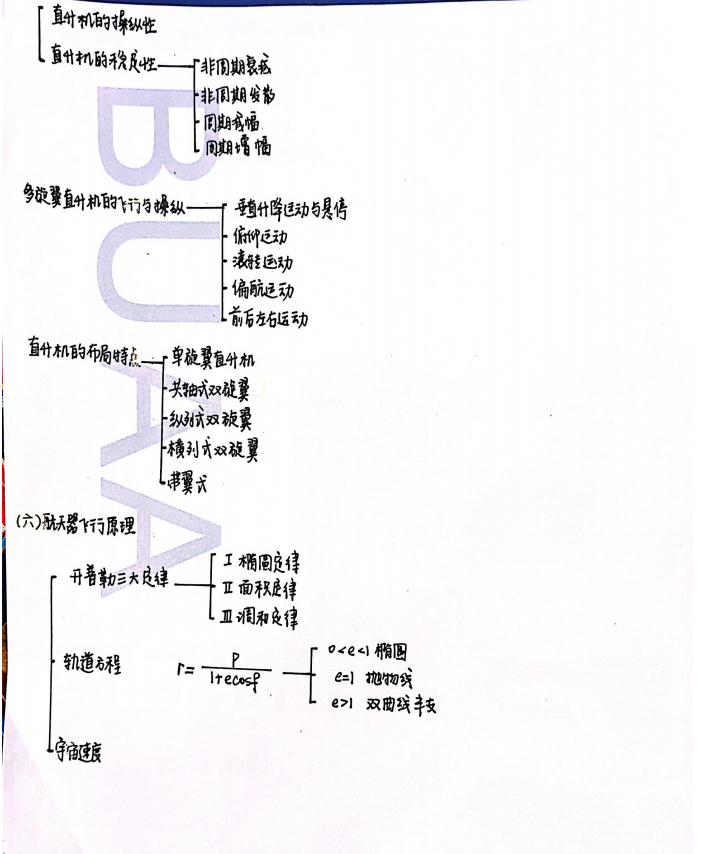 直升机的操纵性
直升机的稳定性
非周期衰减
非周期发散
周期减幅
周期增幅
多旋翼直升机的飞行与操纵
垂直升降运动与悬停
俯仰运动
滚转运动
偏航运动
前后左右运动
直升机的布局特点
单旋翼直升机
共轴式双旋翼
纵列式双旋翼
横列式双旋翼
带翼式
(六)航天器飞行原理
开普勒三大定律
I 椭圆定律
II 面积定律
III 调和定律
轨道方程
r= p/(1+ecosf)
0<e<1 椭圆
e=1 抛物线
e>1 双曲线半支
宇宙速度
BUAA